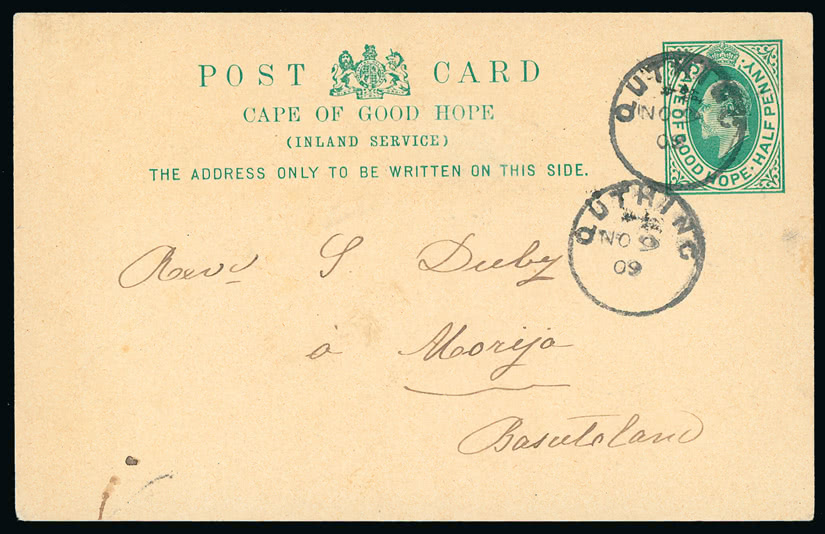 POST CARD
CAPE OF GOOD HOPE
(INLAND SERVICE)
THE ADDRESS ONLY TO BE WRITTEN ON THIS SIDE.
CAPE OF GOOD HOPE. HALFPENNY.
QUTHING
NO
09
QUTHING
NO 9
09
Revd S. Duby
à Morija
Basutoland